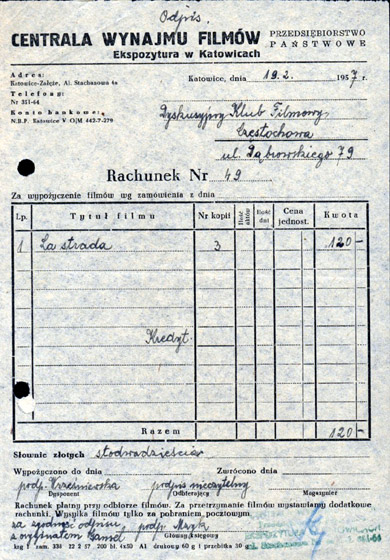 Odpis.
CENTRALA WYNAJMU FILMÓW
PRZEDSIĘBIORSTWO PAŃSTWOWE
Ekspozytura w Katowicach
Adres:
Katowice-Załęże, Al. Stachanowa 4a
Telefony:
Nr 351-64
Konto bankowe:
N.B.P. Katowice V O/M 442-7-279
Katowice, dnia 19.2. 1957 r.
Dyskusyjny Klub Filmowy
Częstochowa
ul. Dąbrowskiego 79
Rachunek Nr 49
Za wypożyczenie filmów wg zamówienia z dnia
Lp. Tytuł filmu Nr kopii Ilość aktów Ilość dni Cena jednost. Kwota
1 La strada 3 120-
Kredyt.
Razem 120-
Słownie złotych stodwadzieścia
Wypożyczono do dnia Zwrócono dnia
podp. podpis nieczytelny
Dysponent Odbierający Magazynier
Rachunek płatny przy odbiorze filmów. Za przetrzymanie filmów wystawiamy dodatkowe
rachunki. Wysyłka filmów tylko za pobraniem pocztowym.
za zgodność odpisu podp.
z oryginałem
Główny księgowy